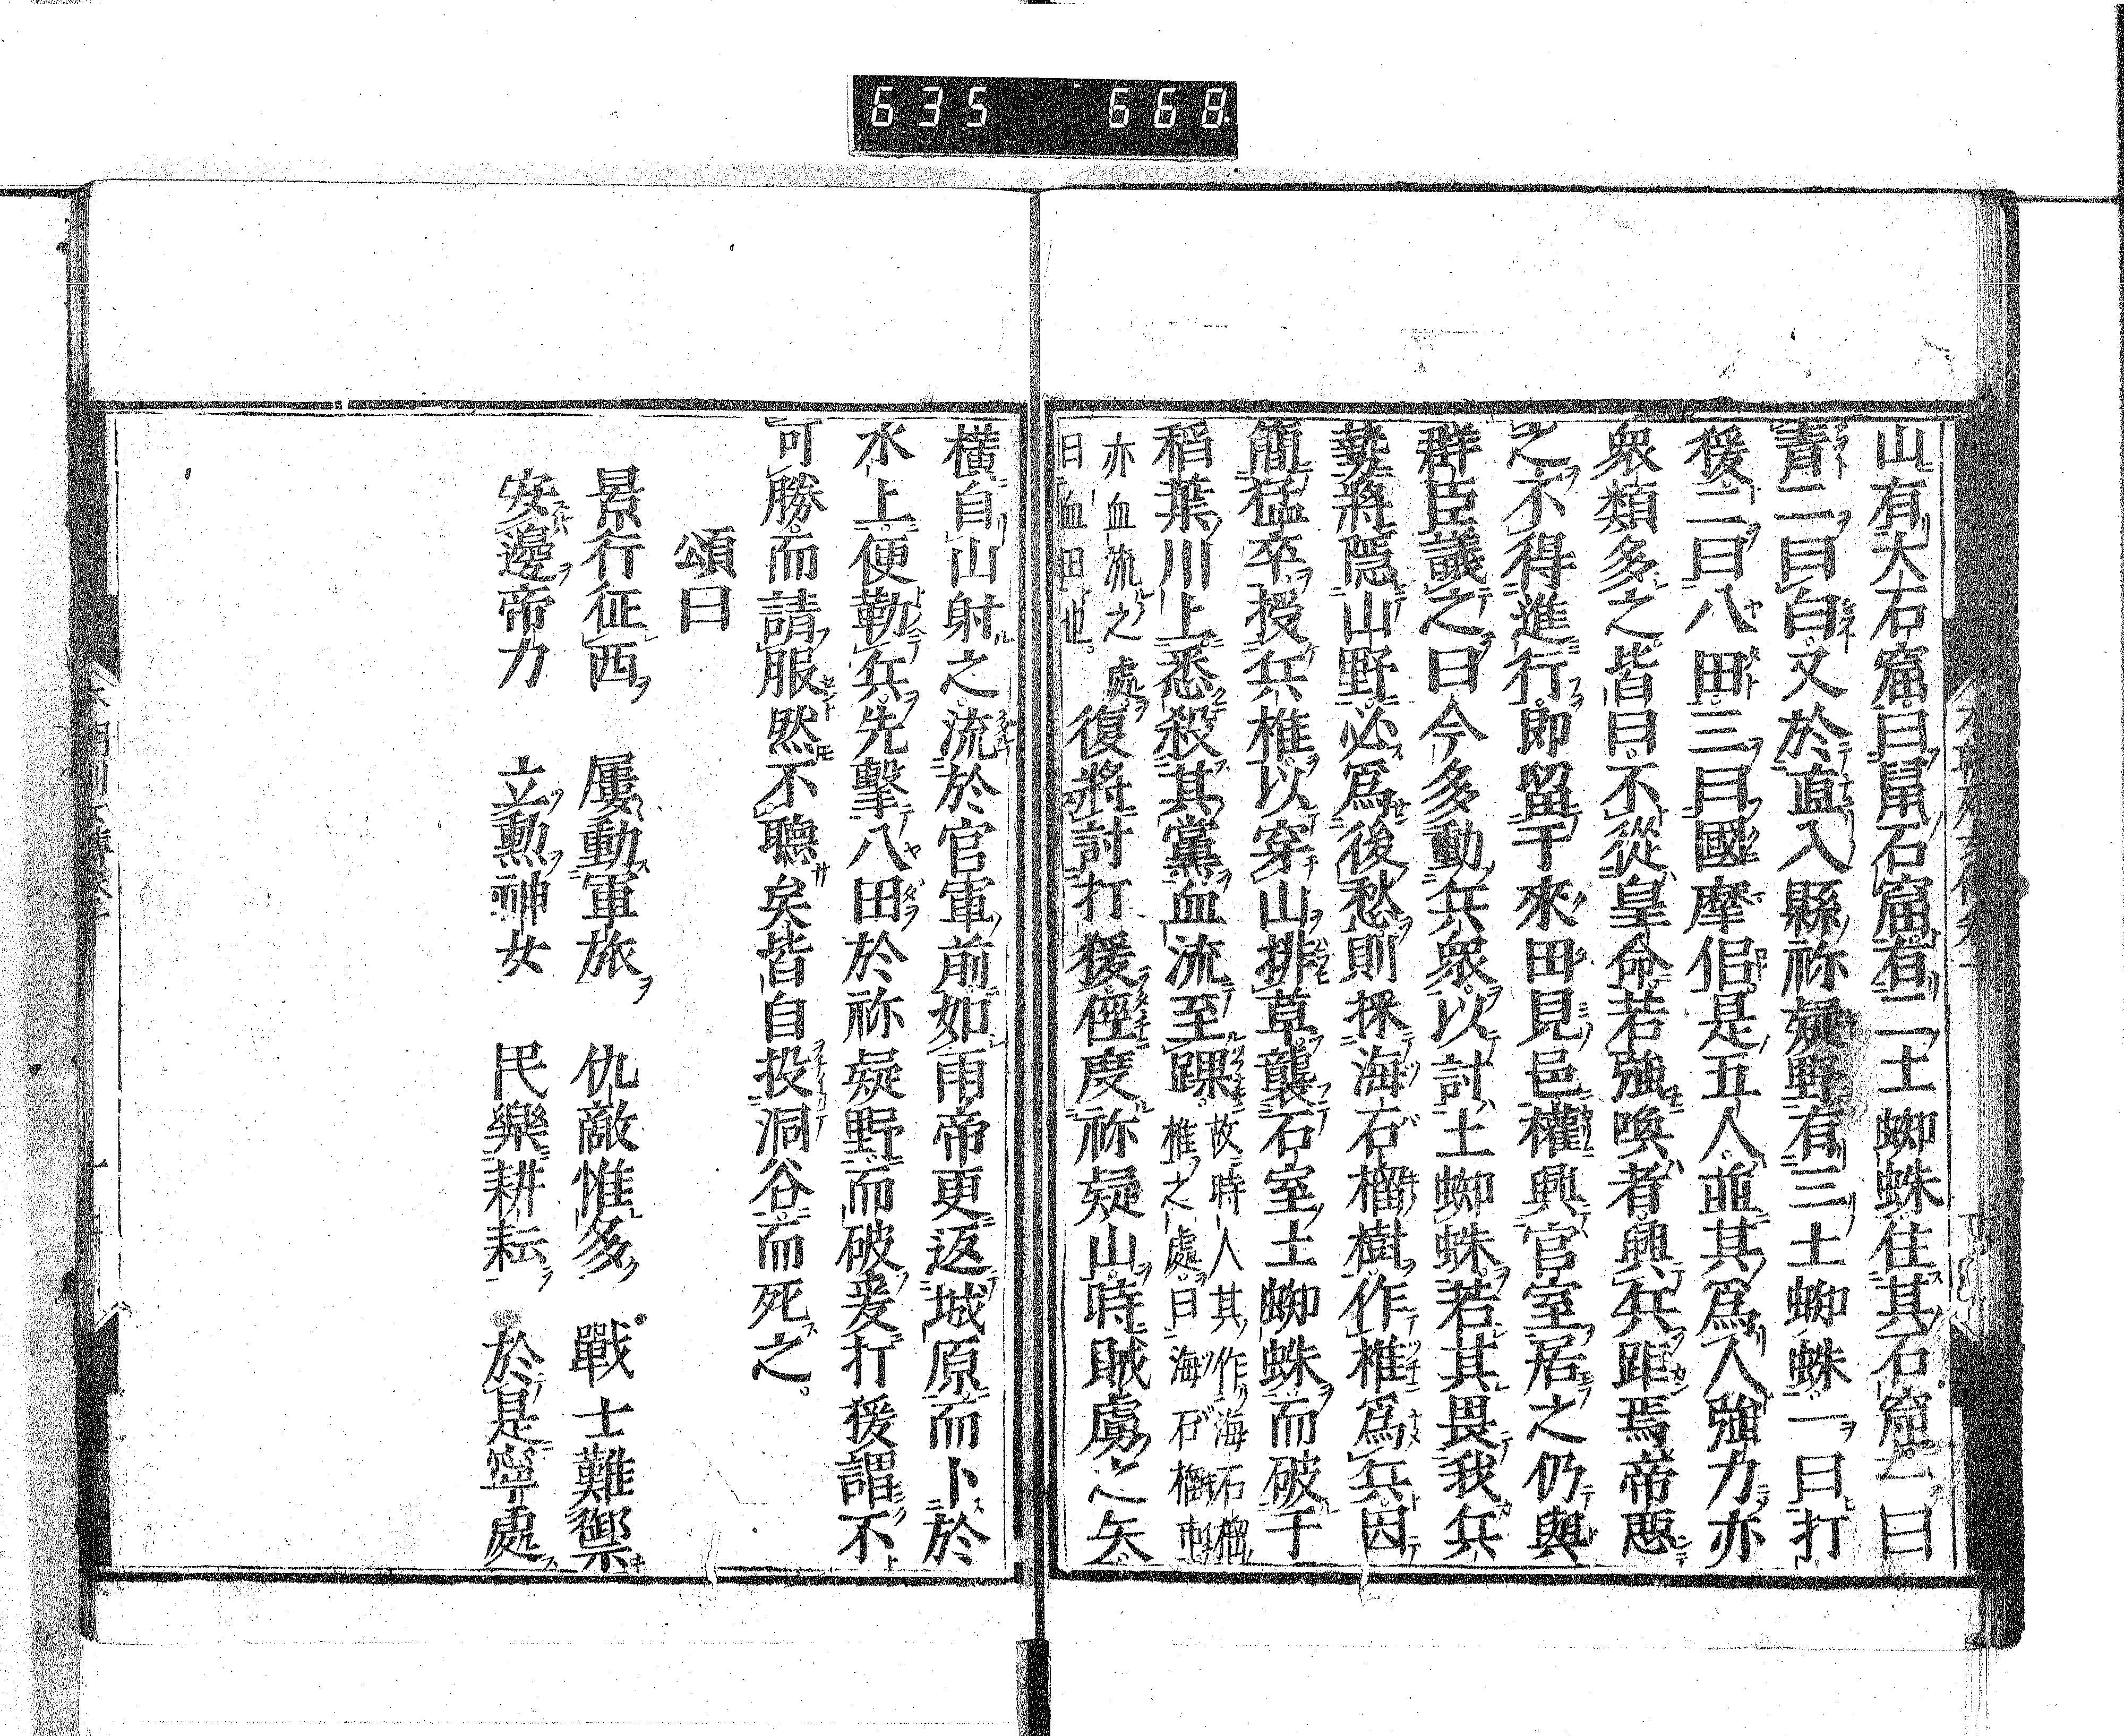 635 668
山有大石窟曰鼠石窟有二土蜘蛛住其石窟一曰
青二曰白又於直入縣祢疑野有三土蜘蛛一曰打
猨二曰八田三曰國摩侶是五人並其爲人強力亦
衆類多之皆曰不從皇命若強喚者興兵距焉帝惡
之不得進行即留于來田見邑權興官室居之仍與
群臣議之曰今多動兵衆以討土蜘蛛若其畏我兵
勢將隱山野必爲後愁則採海石榴樹作椎爲兵因
簡猛卒授兵椎以穿山排草襲石室土蜘蛛而破于
稻葉川上悉殺其黨血流至踝故時人其作海石榴
椎之處曰海石榴市
亦血流之處
曰血田也 復將討打猨侄度祢疑山時賊虜之矢
橫自山射之流於官軍前如雨帝更返城原而卜於
水上便勒兵先擊八田於祢疑野而破爰打猨謂不
可勝而請服然不聽矣皆自投洞谷而死之
頌曰
景行征西 屢動軍旅 仇敵惟多 戰士難禦
安邊帝力 立勳神女 民樂耕耘 於是寧處